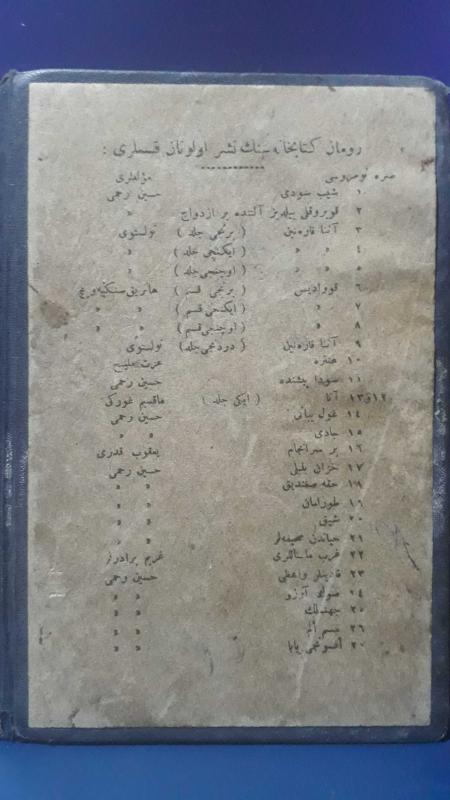 رومان كتابخانه سنك نشر اولونان قسملری :
صره نومروسی مؤلفلری
۱ شیب سودی حسین رحمی
۲ قویروقلی ییلدیز آلتنده بر ازدواج »
۳ آننا قاره نین ( برنجی جلد ) تولستوی
۴ » » ( ایكنجی جلد ) »
۵ » » ( اوچنجی جلد ) »
۶ قووادیس ( برنجی قسم ) هانریق سنكیه ویچ
۷ » ( ایكنجی قسم ) » »
۸ » ( اوچنجی قسم ) » »
۹ آننا قاره نین ( دردنجی جلد ) تولستوی
۱۰ عنتره عزت ملیح
۱۱ سودا پیشنده حسین رحمی
۱۲و۱۳ آنا ( ایكی جلد ) ماقسیم غوركی
۱۴ غول یبانی حسین رحمی
۱۵ جادی » »
۱۶ بر سرانجام یعقوب قدری
۱۷ خزان بلبلی حسین رحمی
۱۹ حقه صغندیق » »
۱۹ طورامان » »
۲۰ شیق » »
۲۱ حیاتدن صحیفه لر » »
۲۲ غریب ماساللری غریم برادرلر
۲۳ قادینلر واعظی حسین رحمی
۲۴ صوك آرزو » »
۲۵ جهنملك » »
۲۶ » »
۲۰ بابا » »